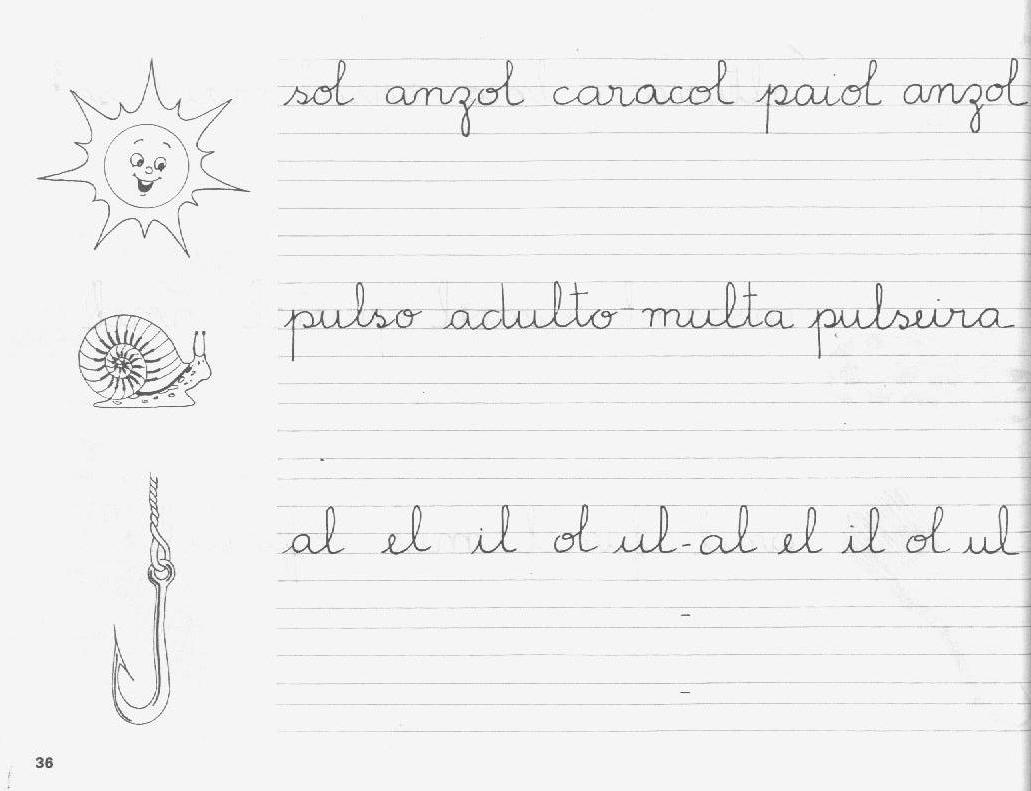 sol anzol caracol paiol anzol
pulso adulto multa pulseira
al el il ol ul-al el il ol ul
-
-
36